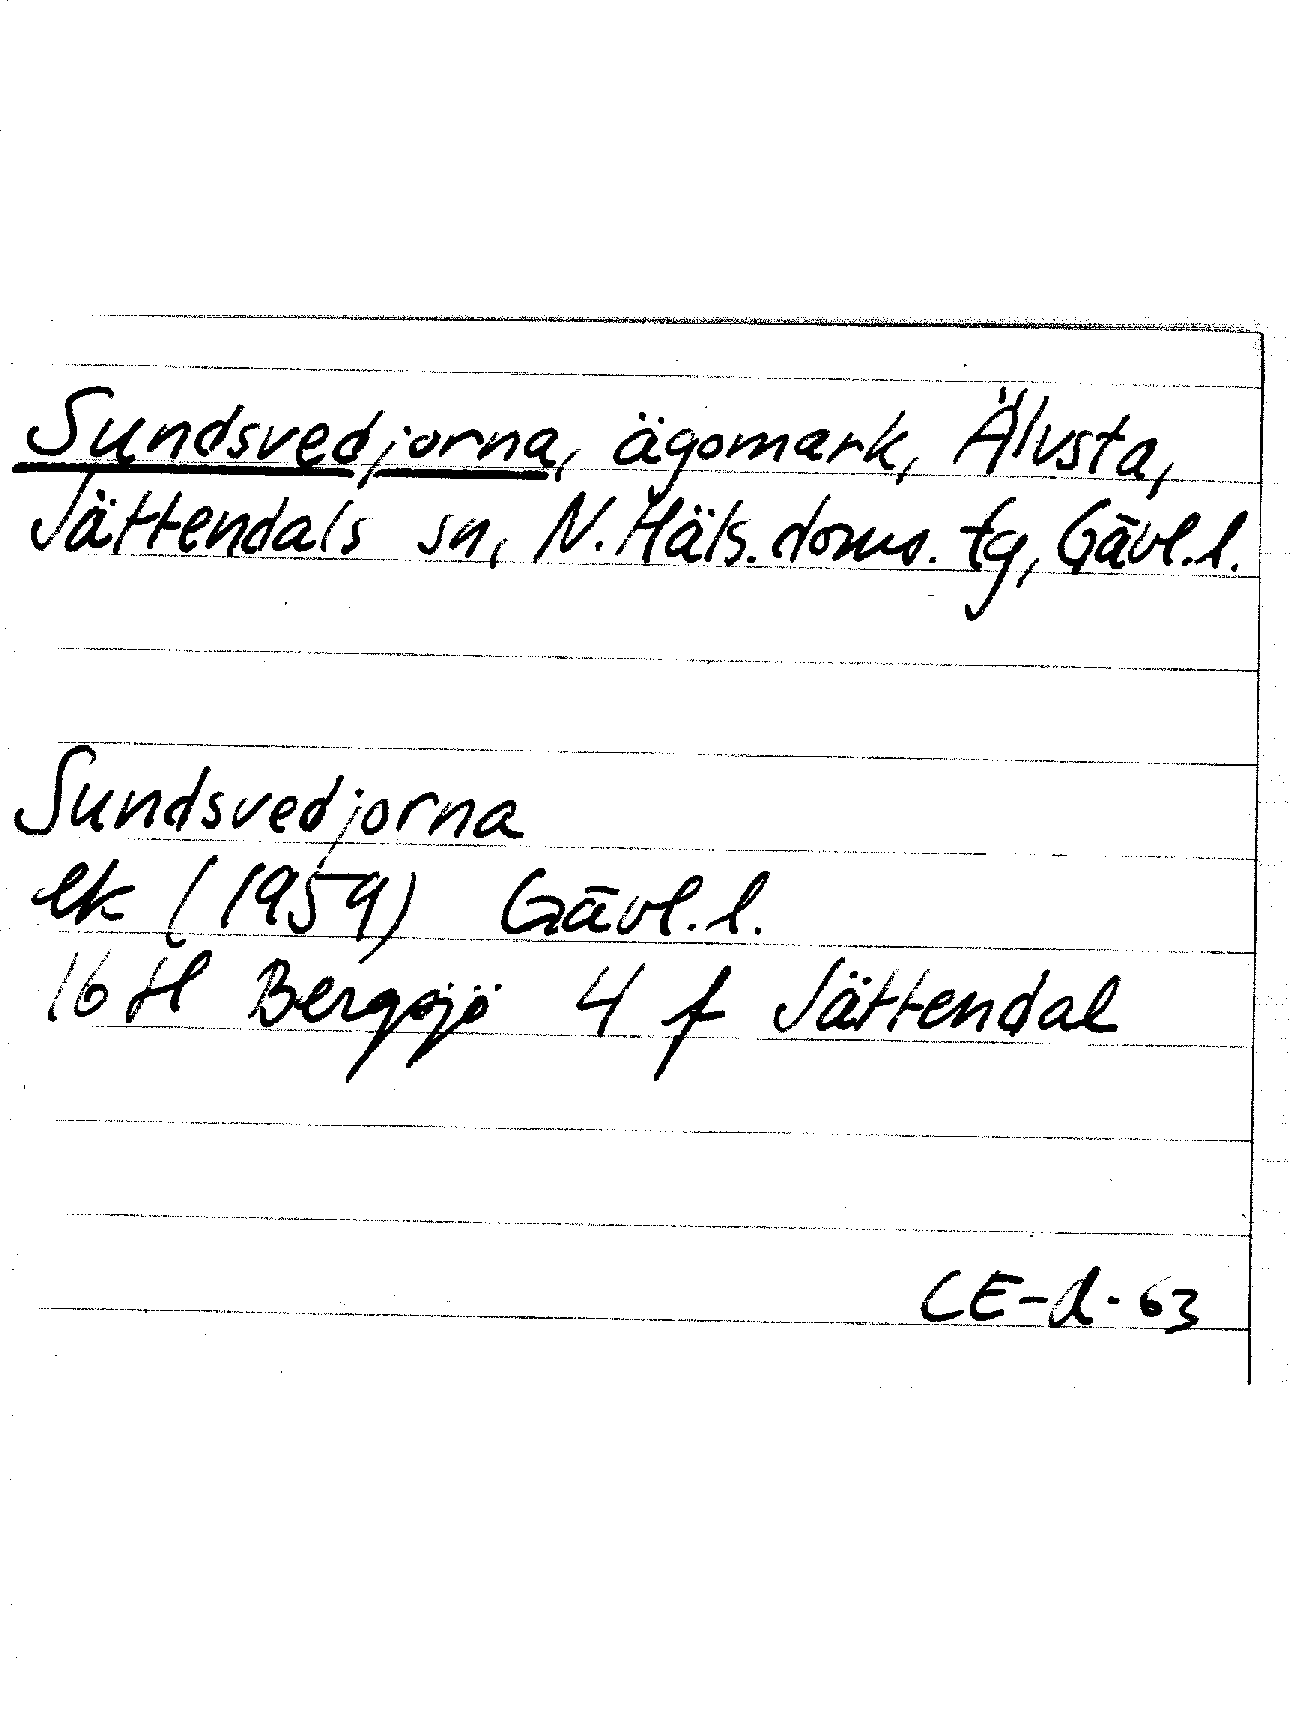 Sundsvedjorna, ägomark, Älvsta,
Jättendals sn, N. Häls. doms. tg, Gävl. l.
Sundsvedjorna
ek (1959) Gävl. l.
16 H Bergsjö 4 f Jättendal
CE-d-63